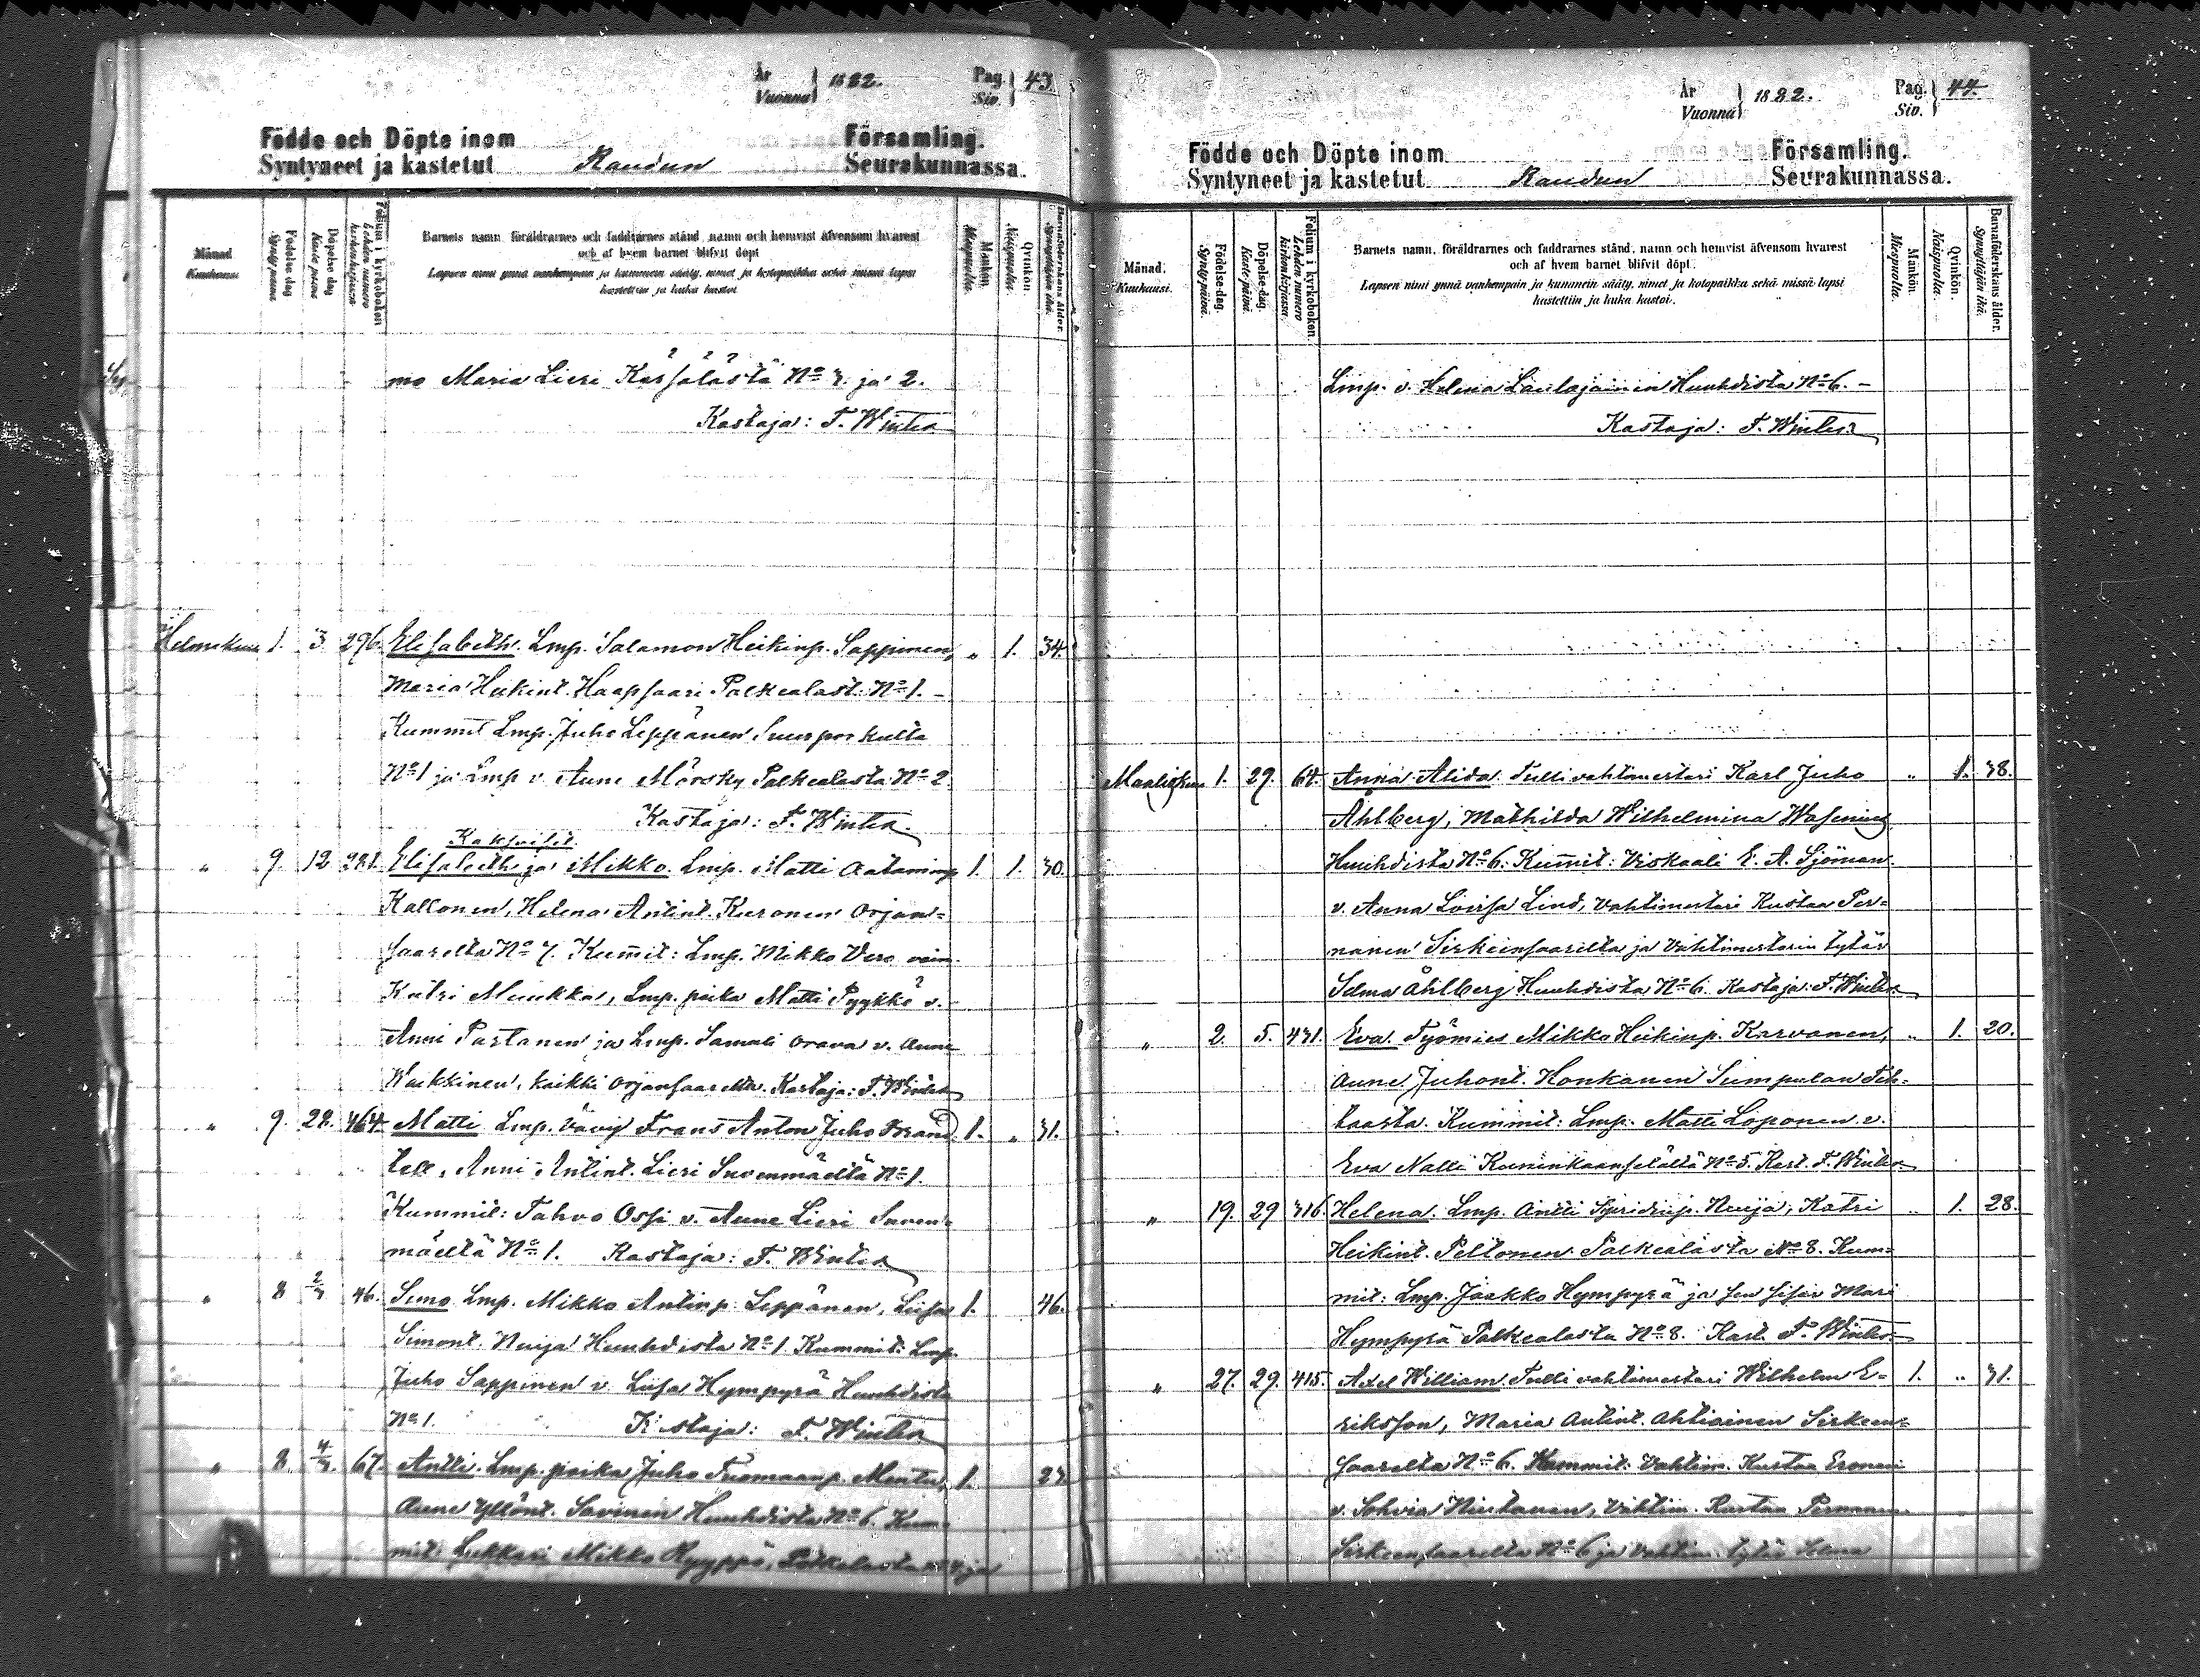 År
Vuonna
1882.
Pag.
Siv.
43.
Födde och Döpte inom Församling.
Syntyneet ja kastetut Raudun Seurakunnassa.
Månad
Kuukausi
Födelse dag
Syntymäpäivä
Döpelse dag
Kaste päivä
Folium i kyrkoboken
Lehden numero kirkonkirjassa
Barnets namn, föräldrarnes och faddrarnes stånd, namn och hemvist äfvensom hvarest
och af hvem barnet blifvit döpt
Lapsen nimi ynnä vanhempain ja kummein sääty, nimet ja kotopaikka sekä missä lapsi
kastettiin ja kuka kastoi
Mankön.
Miespuolia.
Qvinkön.
Naispuolia.
Barnaföderskans ålder.
Synnyttäjän ikä.
mo Maria Lieri Karsälästä No 3. ja 2.
Kastaja: F. Winter
Helmikuu 1. 3 296. Elisabeth. Lmp. Salamon Heikinp. Sappinen, „ 1. 34.
Maria Heikint. Haapsaari Palkealast. No 1. -
Kummit Lmp. Juho Leppänen Suurporkulta
No 1 ja Lmp v. Aune Mörsky Palkealasta No 2
Kastaja: F. Winter.
Kaksoiset
„ 9. 12. 281. Elisabeth ja Mikko. Lmp. Matti Aataminp 1. 1. 30.
Kallonen, Helena Antint. Kuronen Orjan=
saarelta No 7. Kummit: Lmp. Mikko Vero vaim.
Katri Muukka, Lmp. poika Matti Pyykkö v.
Anni Partanen ja Lmp. Samuli Orava v. Anna
kaikki Orjansaarelta. Kastaja: F. Winter
„ 9. 28. 464. Matti Lmp. vävy Frans Anton Juho Brand 1. „ 31.
tell, Anni Antint. Lieri Suvenmäeltä No 1.
Kummit: Tahvo Ossi v. Anne Lieri Suven=
mäeltä No 1. Kastaja: F. Winter
„ 8 2/3 46. Simo Lmp. Mikko Antinp. Leppänen, Liisa 1. 46.
Simont. Nuija Huuhdista No 1. Kummit: Lmp.
Juho Sappinen v. Liisa Hympyrä Huuhdista
No 1. Kastaja: F. Winter
„ 8. 4/3. 67. Antti. Lmp. poika Juho Tuomaanp. Mentu, 1. 27
Anne Yllönt. Savinen Huuhdista No 6. Kum=
mit: Lukkari Mikko Hyyppä, Palkealasta ja
År
Vuonna
1882.
Pag.
Siv.
44.
Födde och Döpte inom Församling.
Syntyneet ja kastetut Raudun Seurakunnassa.
Månad.
Kuukausi.
Födelse-dag.
Syntymäpäivä.
Döpelse-dag.
Kastepäivä.
Folium i kyrkoboken.
Lehden numero kirkonkirjassa.
Barnets namn, föräldrarnes och faddrarnes stånd, namn och hemvist äfvensom hvarest
och af hvem barnet blifvit döpt.
Lapsen nimi ynnä vanhempain ja kummein sääty, nimet ja kotopaikka sekä missä lapsi
kastettiin ja kuka kastoi.
Mankön.
Miespuolia.
Qvinkön.
Naispuolia.
Barnaföderskans ålder.
Synnyttäjän ikä.
Lmp. v. Helena Laulajainen Huuhdista No 6. -
Kastaja: F. Winter
Maaliskuu 1. 29. 64. Anna Alida. Tullivahtimestari Karl Juho „ 1. 38.
Åhlberg, Mathilda Wilhelmina Wasenius
Huuhdista No 6. Kummit: Viskaali E. A. Sjöman
v. Anna Lovisa Lind, Vahtimestari Kustaa Per=
nanen Sirkiinsaarelta ja Vahtimestarin tytär
Selma Åhlberg Huuhdista No 6. Kastaja: F. Winter
„ 2. 5. 431. Eva. Työmies Mikko Heikinp. Karvanen, „ 1. 20.
Aune Juhont. Honkanen Sumpulan Teh=
taasta. Kummit: Lmp. Matti Loponen v.
Eva Nalli Kuninkaanselältä No 5. Kast. F. Winter
„ 19. 29 316. Helena. Lmp. Antti Spiridinp. Nuija, Katri „ 1. 28.
Heikint. Peltonen Palkealasta No 8. Kum=
mit: Lmp. Jaakko Hympyrä ja sen sisar Mari
Hympyrä Palkealasta No 8. Kast. F. Winter
„ 27. 29. 415. Axel William. Tullivahtimestari Wilhelm E= 1. „ 31.
riksson, Maria Antint. Ahtiainen Sirkeen=
saarelta No 6. Kummit: Vahtim. Kustaa Eronen
v. Sohvia Hintanen, Vahtim. Kustaa Pernanen
Sirkeensaarelta No 6 ja Vahtim. tytär Helena